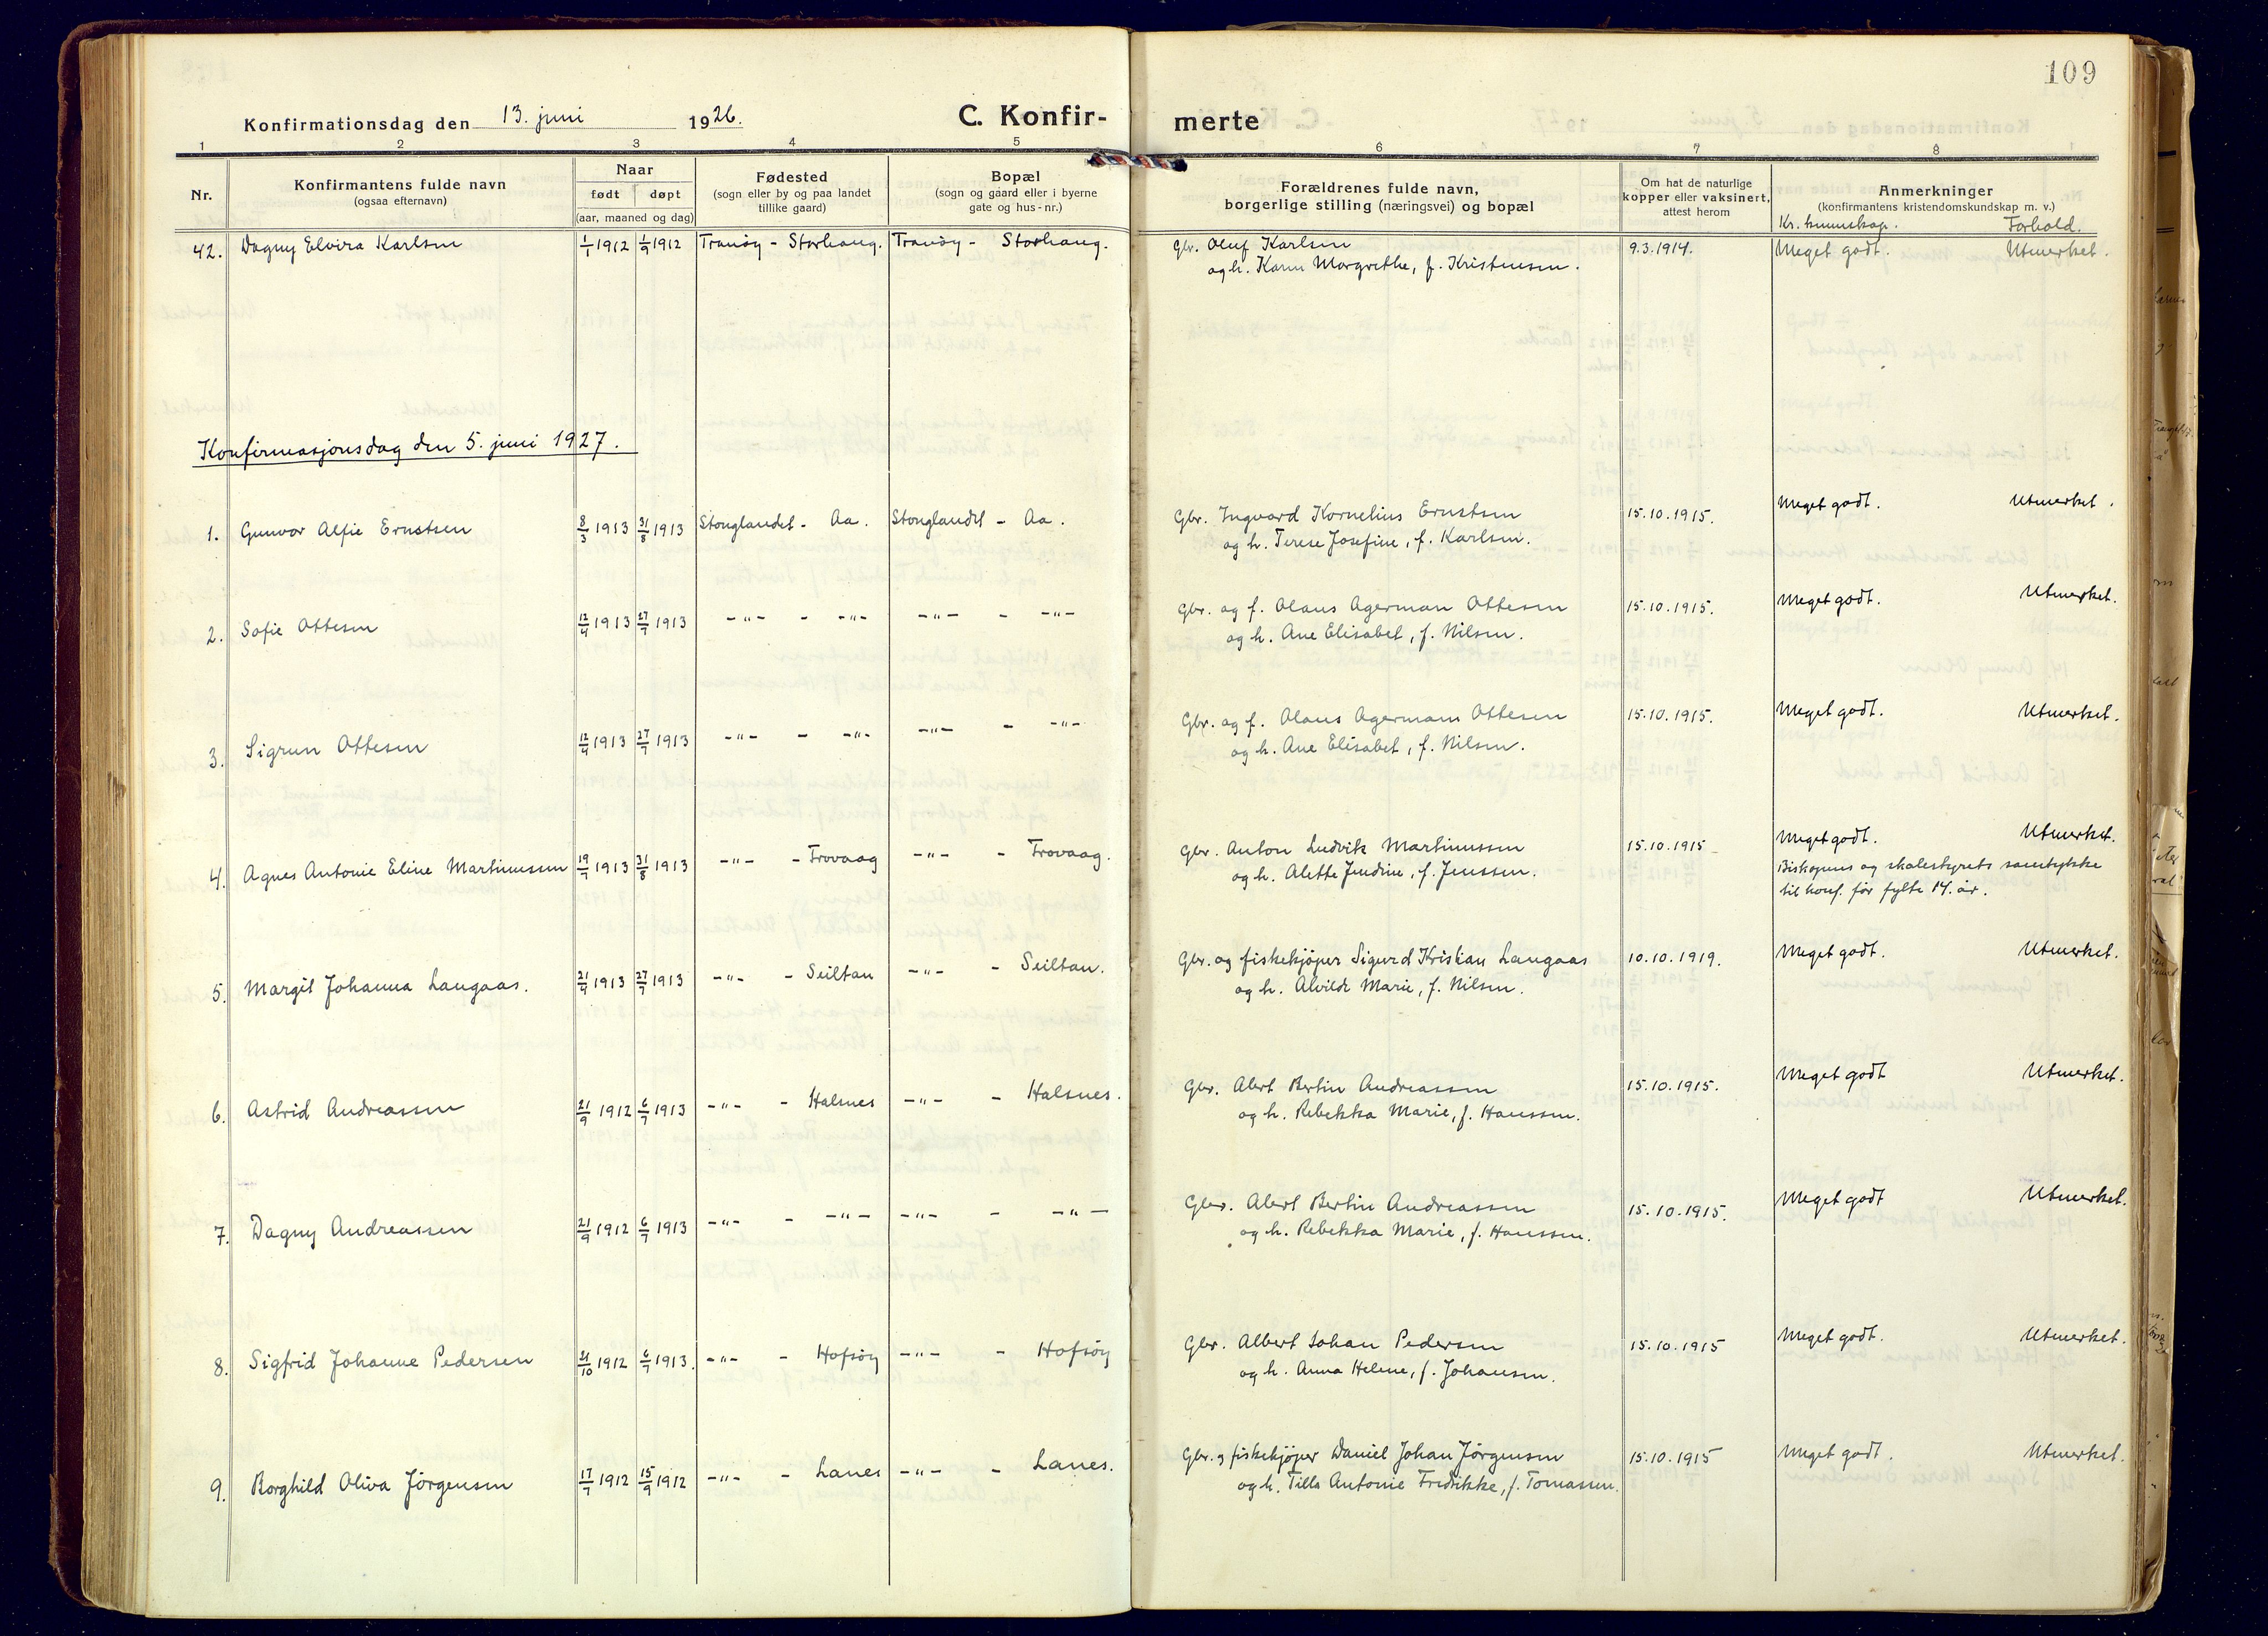 109
Konfirmationsdag den 13. juni 1926. C. Konfirmerte
1 2 3 4 5 6 7 8
Nr.
Konfirmantens fulde navn
(ogsaa efternavn)
Naar
født døpt
(aar, maaned og dag)
Fødested
(sogn eller by og paa landet
tillike gaard)
Bopæl
(sogn og gaard eller i byerne
gate og hus-nr.)
Forældrenes fulde navn,
borgerlige stilling (næringsvei) og bopæl
Om hat de naturlige
kopper eller vaksinert,
attest herom
Anmerkninger
(konfirmantens kristendomskundskap m. v.)
Kr. kunnskap. Forhold.
42. Dagny Elvira Karlsen 1/1 1912 1/9 1912 Tranöy - Storhaug. Tranöy - Storhaug. Gbr. Oluf Karlsen 9.3.1914. Meget godt. Utmerket.
og h. Karen Margrethe, f. Kristensen.
Konfirmasjonsdag den 5. juni 1927.
1. Gunvor Alfie Ernstsen 8/3 1913 31/8 1913 Stonglandet - Aa. Stonglandet - Aa. Gbr. Ingvard Kornelius Ernstsen 15.10.1915. Meget godt. Utmerket.
og h. Terese Josefine, f. Karlsen.
2. Sofie Ottesen 12/4 1913 27/7 1913 -"- - -"- -"- - -"- Gbr. og f. Olaus Agerman Ottesen 15.10.1915. Meget godt. Utmerket.
og h. Ane Elisabet, f. Nilsen.
3. Sigrun Ottesen 12/4 1913 27/7 1913 -"- - -"- -"- - -"- Gbr. og f. Olaus Agerman Ottesen 15.10.1915. Meget godt. Utmerket.
og h. Ane Elisabet, f. Nilsen.
4. Agnes Antonie Eline Martinussen 19/7 1913 31/8 1913 -"- - Trovaag -"- - Trovaag. Gbr. Anton Ludvik Martinussen 15.10.1915 Meget godt. Utmerket.
og h. Alette Jendine, f. Jenssen. Biskopens og skolestyrets samtykke
til konf. før fylte 14. år.
5. Margit Johanna Langaas. 21/4 1913 27/7 1913 -"- - Seiltan -"- - Seiltan. Gbr. og fiskekjöper Sigurd Kristian Langaas 10.10.1919. Meget godt. Utmerket.
og h. Alvilde Marie, f. Nilsen.
6. Astrid Andreassen 21/9 1912 6/7 1913 -"- - Halsnes -"- - Halsnes. Gbr. Albert Bertin Andreassen 15.10.1915. Meget godt Utmerket.
og h. Rebekka Marie, f. Hanssen.
7. Dagny Andreassen 21/9 1912 6/7 1913 -"- - -"- -"- - -"- Gbr. Albert Bertin Andreassen 15.10.1915. Meget godt Utmerket.
og h. Rebekka Marie, f. Hanssen.
8. Sigfrid Johanne Pedersen 21/10 1912 6/7 1913. -"- - Hofsöy -"- - Hofsöy Gbr. Albert Johan Pedersen 15.10.1915 Meget godt. Utmerket.
og h. Anna Helene, f. Johansen.
9. Borghild Oliva Jörgensen 17/7 1912 15/9 1912 -"- - Lanes -"- - Lanes. Gbr. og fiskekjöper Daniel Johan Jörgensen 15.10.1915 Meget godt. Utmerket.
og h. Antonie Fredrikke, f. Tomassen.